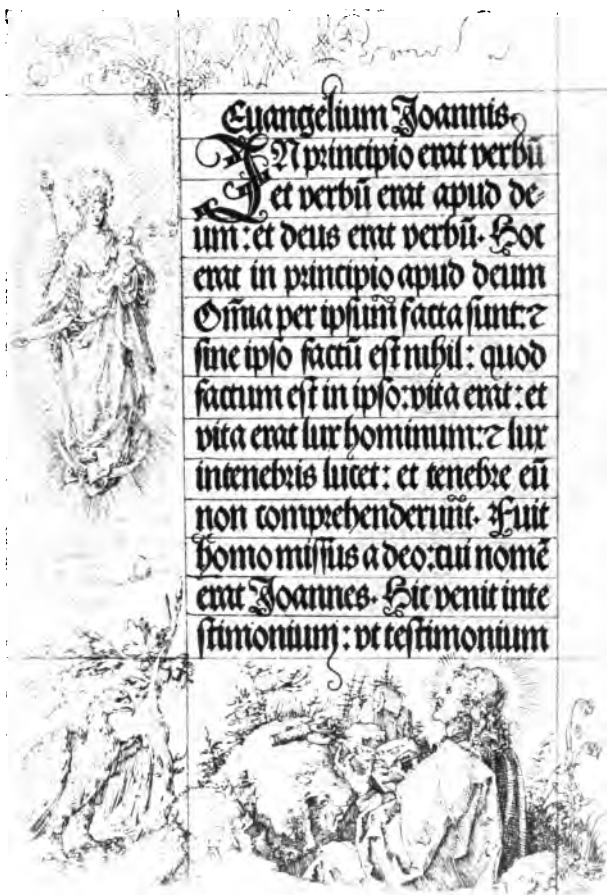 Euangelium Joannis.
IN principio erat verbū
et verbū erat apud de⸗
um: et deus erat verbū. Hoc
erat in principio apud deum
Om̄ia per ipsum facta sunt: ⁊
sine ipso factū est nihil: quod
factum est in ipso: vita erat: et
vita erat lux hominum: ⁊ lux
intenebris lucet: et tenebre eū
non comprehenderunt. Fuit
homo missus a deo: cui nomē
erat Joannes. Hic venit inte
stimonium: vt testimonium